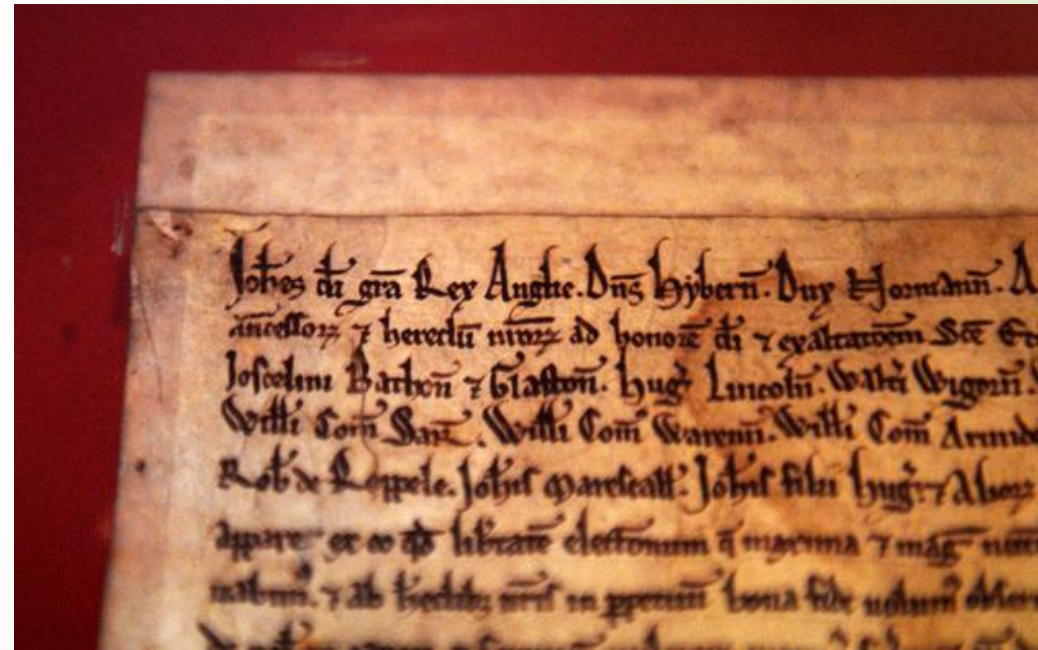 Joh̄es di gr̄a Rex Anglie. Dn̄s Hybern̄. Dux Norm̄ann̄. A
ancessoꝝ ⁊ heredū nr̄oꝝ ad honorē di ⁊ exaltatōem Sc̄e Ec
Joscelini Bathon̄ ⁊ Glaston̄. Huḡ Lincoln̄. Walt̄i Wigorn̄.
Willi Com̄ Sar̄. Willi Com̄ Warenn̄. Willi Com̄ Arund
Rob̄ de Roppele. Joh̄is Marescall̄. Joh̄is filii Huḡ ⁊ Alioꝝ
appare ex eo qd̄ lib̄tatē electionum q̄ maxima ⁊ maḡ
⁊ ab h̄edibꝫ nr̄is in ꝑpetuū bona fide volum᷒